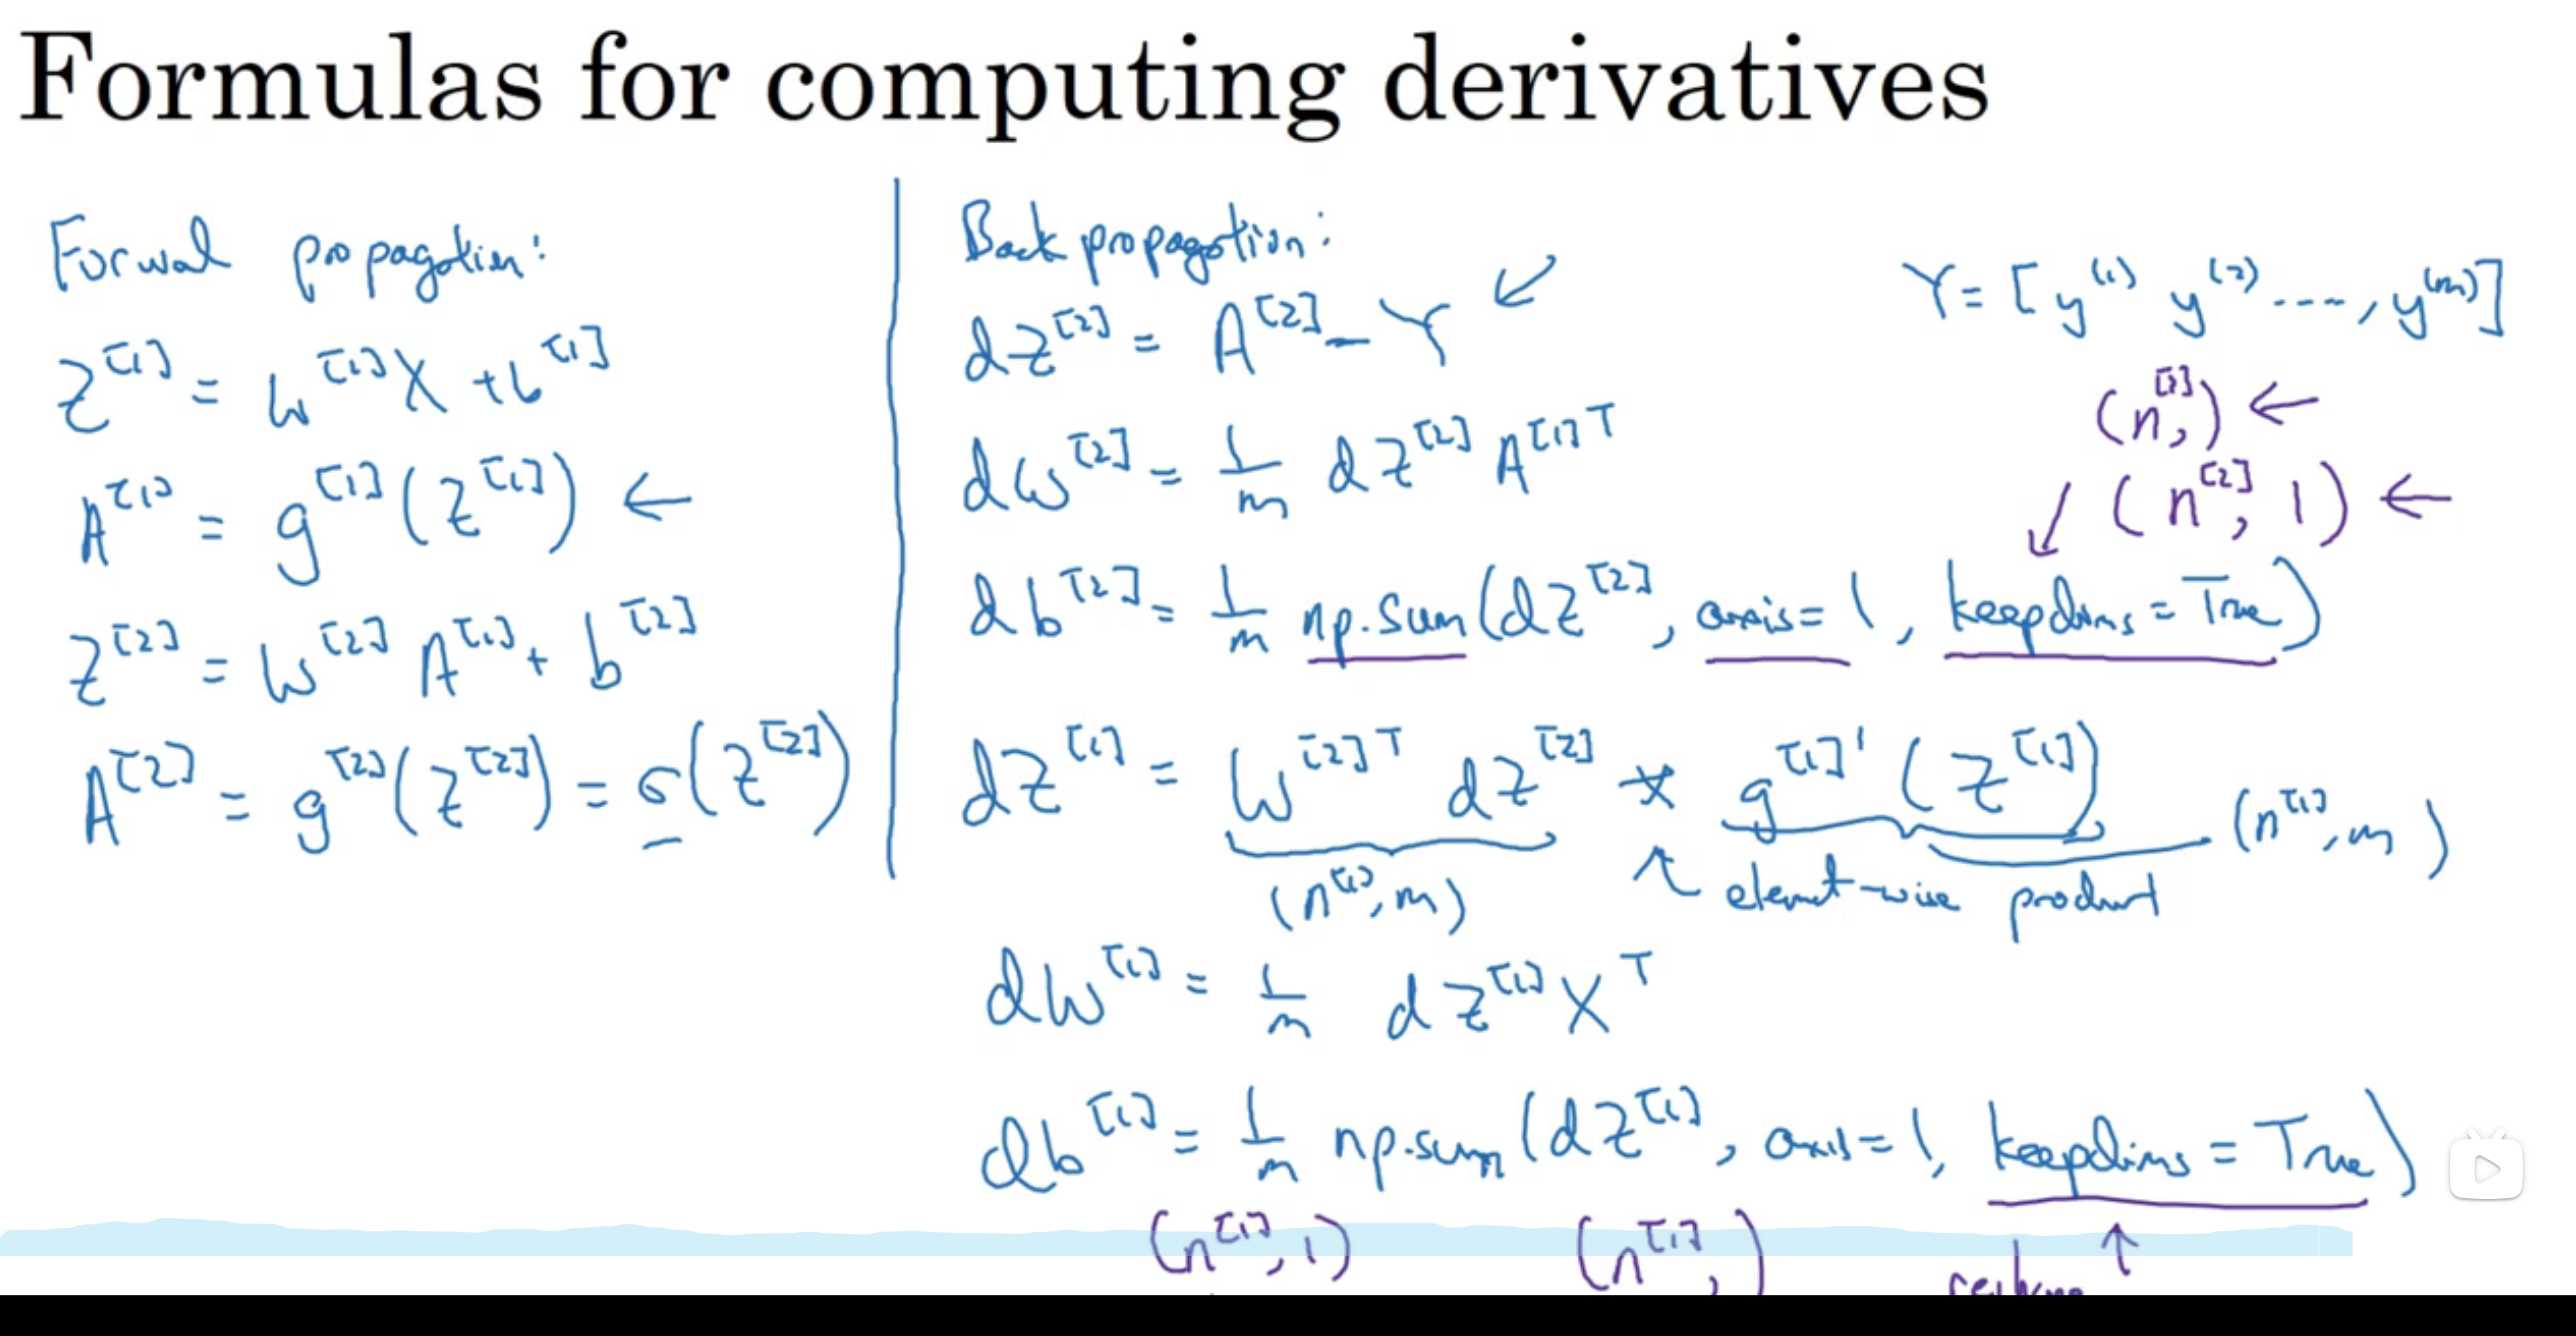 Formulas for computing derivatives
Forwal propagation:
Z^[1] = W^[1] X + b^[1]
A^[1] = g^[1](Z^[1]) ←
Z^[2] = W^[2] A^[1] + b^[2]
A^[2] = g^[2](Z^[2]) = σ(Z^[2])
Back propagation:
dZ^[2] = A^[2] − Y ↙
Y = [y^(1) y^(2) ...., y^(m)]
dW^[2] = 1/m dZ^[2] A^[1]T
(n^[2],) ←
(n^[2], 1) ←
db^[2] = 1/m np.sum(dZ^[2], axis=1, keepdims=True)
dZ^[1] = W^[2]T dZ^[2] * g^[1]'(Z^[1])
(n^[1], m) element-wise product (n^[1], m)
dW^[1] = 1/m dZ^[1] X^T
db^[1] = 1/m np.sum(dZ^[1], axis=1, keepdims=True)
(n^[1], 1) (n^[1],)